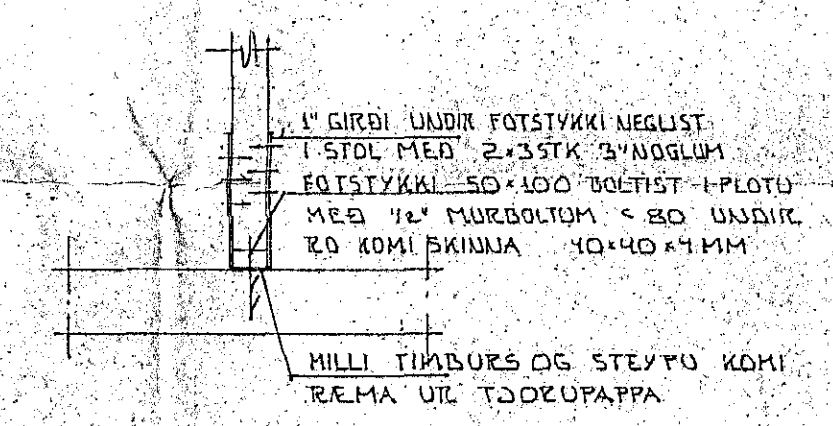 1" GIRÐI UNDIR FOTSTYKKI NEGLIST
I STOL MEÐ 2×3STK 3" NOGLUM
FOTSTYKKI 50×100 BOLTIST I PLOTU
MEÐ 1/2" MURBOLTUM < 80 UNDIR
RO KOMI SKINNA 40×40×4 MM
MILLI TIMBURS OG STEYPU KOMI
RÆMA UR TJORUPAPPA